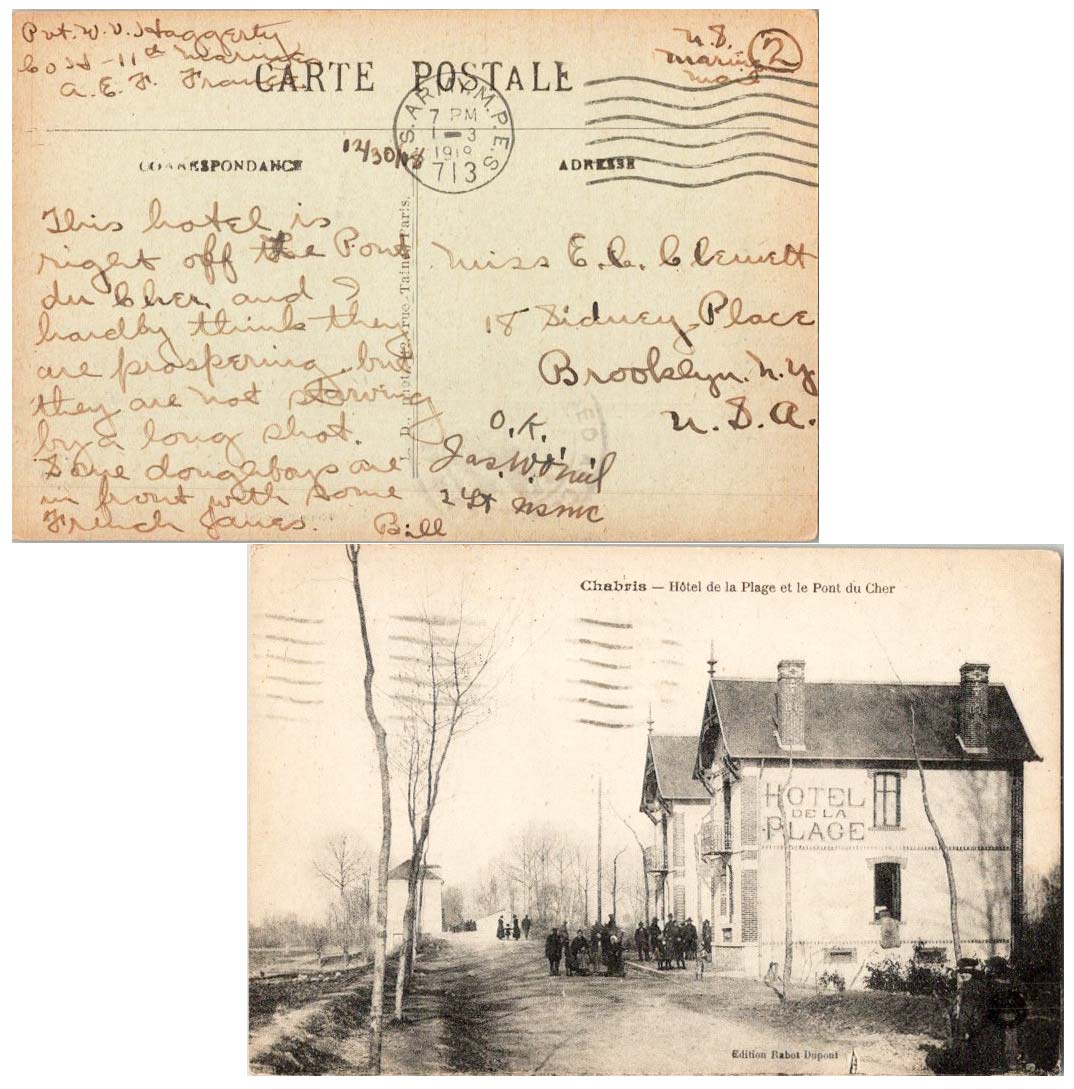 Pvt. W. V. Haggerty
Co H - 11th Marines
A. E. F. France
U.S.
Marine
Mail
2
CARTE POSTALE
U.S. ARMY M.P.E.S
7 PM
1 - 3
1919
713
12/30/18
CORRESPONDANCE
ADRESSE
This hotel is
right off the Pont
du Cher and I
hardly think they
are prospering but
they are not starving
by a long shot.
Some doughboys are
in front with some
French Janes. Bill
Miss E. C. Clewett
18 Sidney Place
Brooklyn. N.Y
U.S.A.
O.K.
Jas. W. O'Neil
2 Lt USMC
Paris.
Chabris — Hôtel de la Plage et le Pont du Cher
HOTEL
DE LA
PLAGE
Edition Rabot Dupont